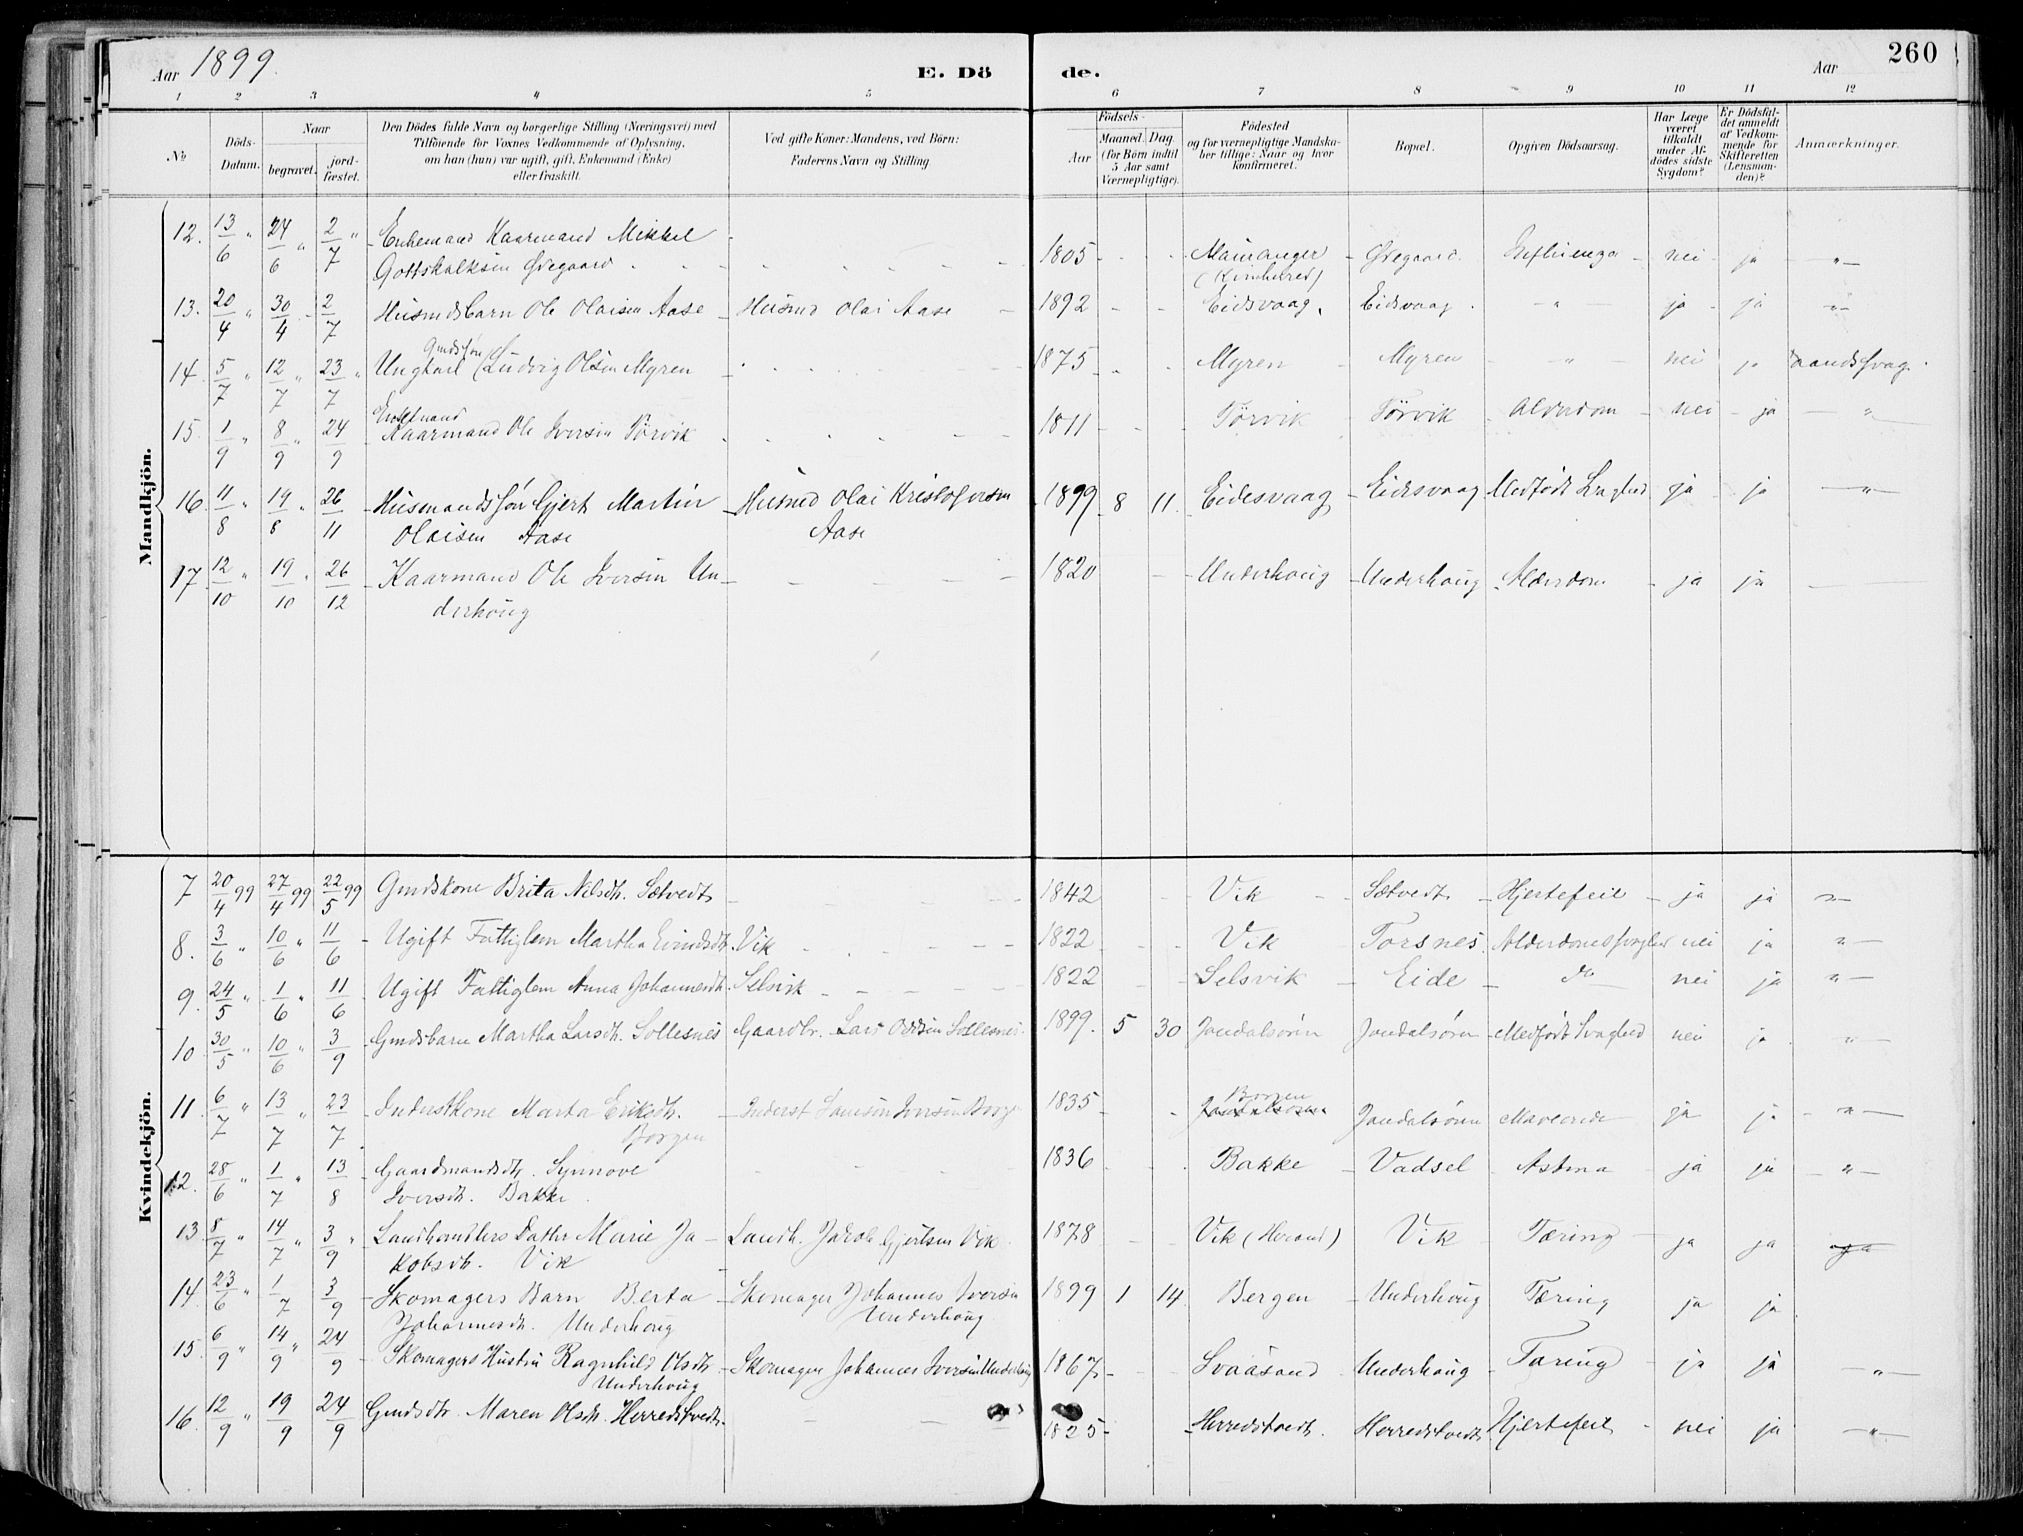 Aar 1899. E. Dö de. Aar 260
1 2 3 4 5 6 7 8 9 10 11 12
No Döds-Datum. Naar begravet. jord-fæstet. Den Dödes fulde Navn og borgerlige Stilling (Næringsvei) med Tilföiende for Voxnes Vedkommende af Oplysning, om han (hun) var ugift, gift, Enkemand (Enke) eller fraskilt. Ved gifte Koner: Mandens, ved Börn: Faderens Navn og Stilling. Födsels- Aar Maaned. Dag. (for Börn indtil 5 Aar samt Værnepligtige). Födested og for værnepligtige Mandskaber tillige: Naar og hvor konfirmeret. Bopæl. Opgiven Dödsaarsag. Har Læge været tilkaldt under Afdödes sidste Sygdom? Er Dödsfaldet anmeldt af Vedkommende for Skifteretten (Lensmanden)? Anmærkninger.
Mandkjön.
12. 13/6 " 24/6 " 2/7 " Enkemand Kaarmand Mikkel
Gottskalksen Ødegaard 1805 Mauranger (Kvinherred) Ødegaard Influenza nei ja "
13. 20/4 30/4 2/7 Husmdsbarn Ole Olaisen Aase Husmd Olai Aase 1892 Eidsvaag. Eidsvaag. " ja ja "
14. 5/7 " 12/7 " 23/7 " Ungkarl (Gmdssøn) Ludvig Olsen Myren 1875 Myren Myren " nei ja aandssvag.
15. 1/9 " 8/9 " 24/9 Enkemand Kaarmand Ole Iversen Tørvik 1811 Tørvik Tørvik Alderdom nei ja "
16. 11/8 " 19/8 " 26/11 Husmandssøn Gjert Martin Husmd Olai Kristofersen 1899 8 11. Eidesvaag Eidesvaag Medfødt Svaghed ja ja "
Olaisen Aase Aase
17. 12/10 " 19/10 " 26/12 Kaarmand Ole Iversen Un- 1820 Underhoug Underhoug Alderdom ja ja
derhoug
Kvindekjön.
7 20/4 99 27/4 99 22/5 99 Gmdskone Brita Nilsdtr. Sætvedt 1842 Vik Sætvedt Hjertefeil ja ja "
8. 3/6 " 10/6 " 11/6 Ugift Fattiglem Martha Eivindsdtr. Vik 1822 Vik Torsnes Alderdomssvaghed nei ja "
9. 24/5 " 1/6 " 11/6 Ugift Fattiglem Anna Johannesdtr. Selsvik 1822 Selsvik Eide do nei ja "
10. 30/5 " 10/6 " 3/9 Gmdsbarn Martha Larsdtr. Sollesnes Gaardbr. Lars Oddsen Sollesnes 1899. 5 30 Jondalsøren Jondalsøren Medfødt Svaghed nei ja "
11. 6/7 " 13/7 " 23/7. Inderstkone Marta Eriksdtr. Inderst Samson Iversen Borgen 1835 Borgen Jondalsøren Jondalsøren Maveonde ja ja "
Borgen
12. 28/6 " 1/7 " 13/8 Gaardmandsdtr. Synnove 1836 Bakke Vadsel Astma ja ja "
Iversdtr. Bakke
13. 8/7 " 14/7 " 3/9 " Landhandlers Datter Marie Ja- Landh. Jakob Gjertsen Vik 1878 Vik (Herand) Vik Tæring ja ja
kobsdtr. Vik
14. 23/6 " 1/7 3/9 Skomagers Barn Berta Skomager Johannes Iversen 1899 1 14 Bergen Underhoug Tæring ja ja
Johannesdtr. Underhoug Underhoug
15. 6/9 " 14/9 " 24/9 Skomagers Hustru Ragnhild Olsdtr. Skomager Johannes Iversen Underhoug 1867 Svaasand Underhoug Tæring ja ja "
Underhoug
16. 12/9 " 19/9 24/9 Gmdsdtr. Maren Olsdtr. Herredstvedt 1825 Herredstvedt. Herredstvedt Hjertefeil nei ja "